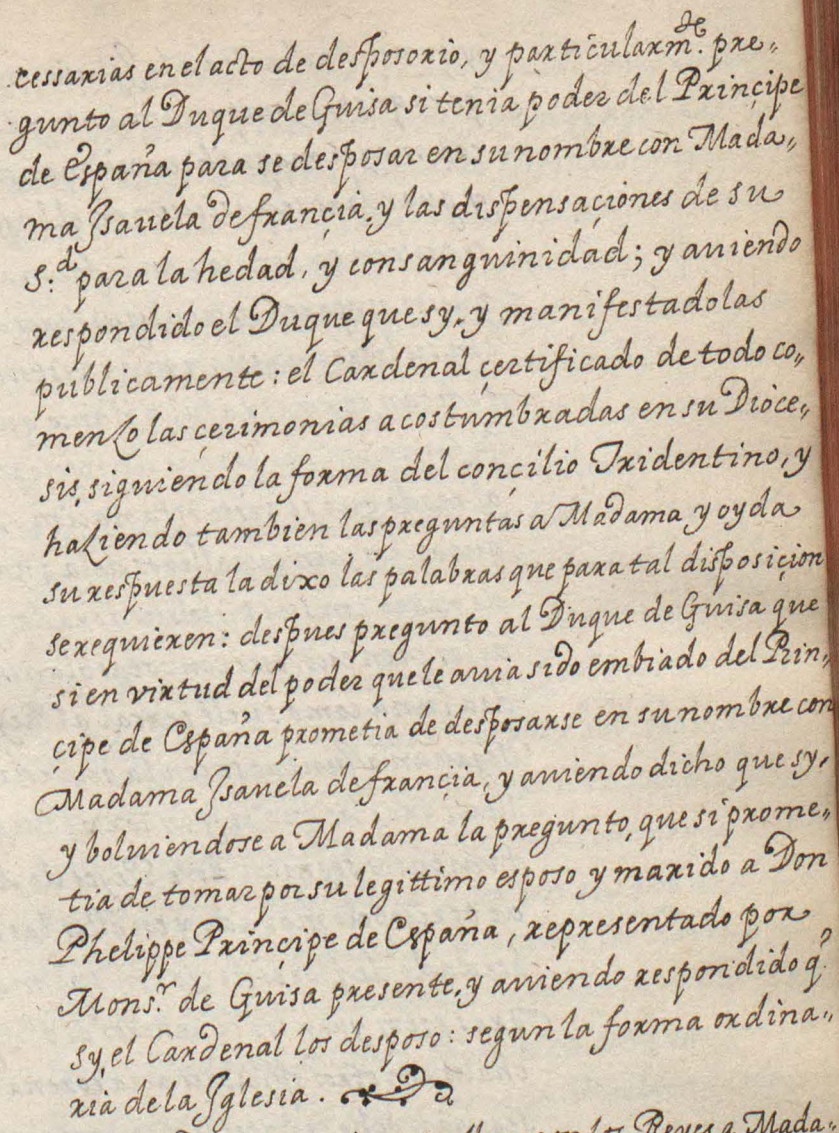 cessarias en el acto de desposorio, y particularm.te pre„
gunto al Duque de Guisa si tenia poder del Prinçipe
de España para se desposar en su nombre con Mada„
ma Jsauela de françia, y las dispensaçiones de su
S.d para la hedad, y consanguinidad; y auiendo
respondido el Duque que sy, y manifestadolas
publicamente: el Cardenal çertificado de todo co„
menzo las çerimonias acostumbradas en su Dioce„
sis, siguiendo la forma del concilio Tridentino, y
haziendo tambien las preguntas a Madama y oyda
su respuesta la dixo las palabras que para tal disposiçion
se requieren: despues pregunto al Duque de Guisa que
si en virtud del poder que le auia sido embiado del Prin„
çipe de España prometia de desposarse en su nombre con
Madama Jsauela de françia, y auiendo dicho que sy,
y boluiendose a Madama la pregunto, que si prome„
tia de tomar por su legittimo esposo y marido a Don
Phelippe Prinçipe de España, representado por
Mons.r de Guisa presente, y auiendo respondido q̃
sy, el Cardenal los desposo: segun la forma ordina„
ria de la Jglesia.
los Reyes a Mada„